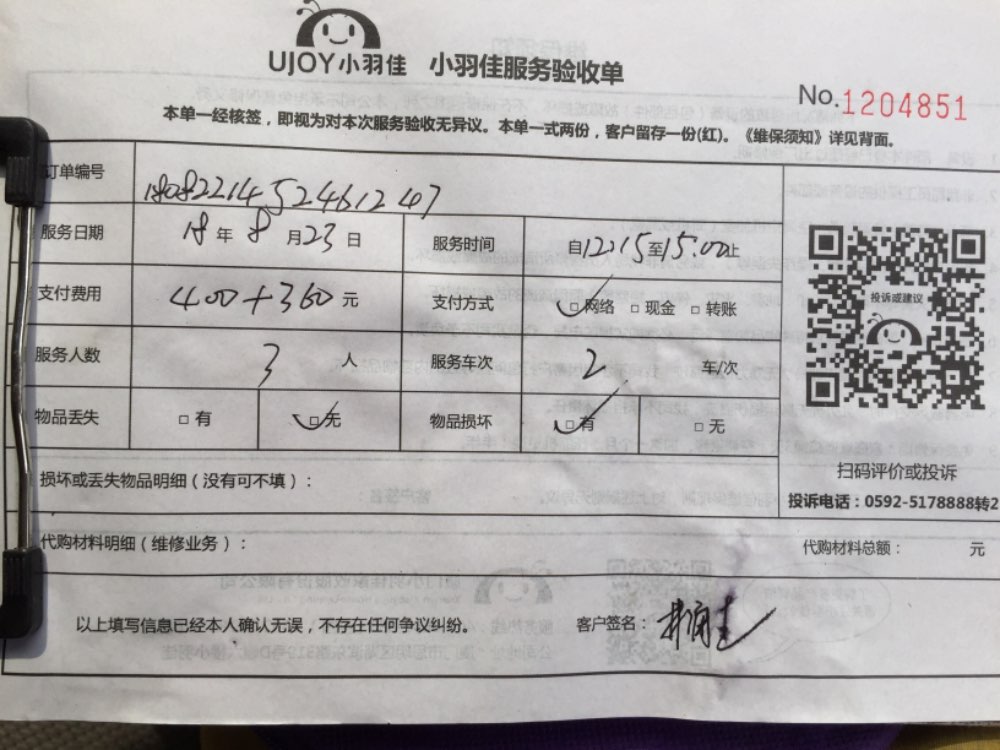 UJOY小羽佳 小羽佳服务验收单
No.1204851
本单一经核签，即视为对本次服务验收无异议。本单一式两份，客户留存一份(红)。《维保须知》详见背面。
订单编号 1808221452461247
服务日期 18 年 8 月 23 日 服务时间 自12:15至15:00止
支付费用 400+360 元 支付方式 □网络 □现金 □转账
投诉或建议
服务人数 3 人 服务车次 2 车/次
物品丢失 □有 □无 物品损坏 □有 □无
扫码评价或投诉
损坏或丢失物品明细（没有可不填）：
投诉电话：0592-5178888转2
代购材料明细（维修业务）： 代购材料总额： 元
以上填写信息已经本人确认无误，不存在任何争议纠纷。 客户签名：